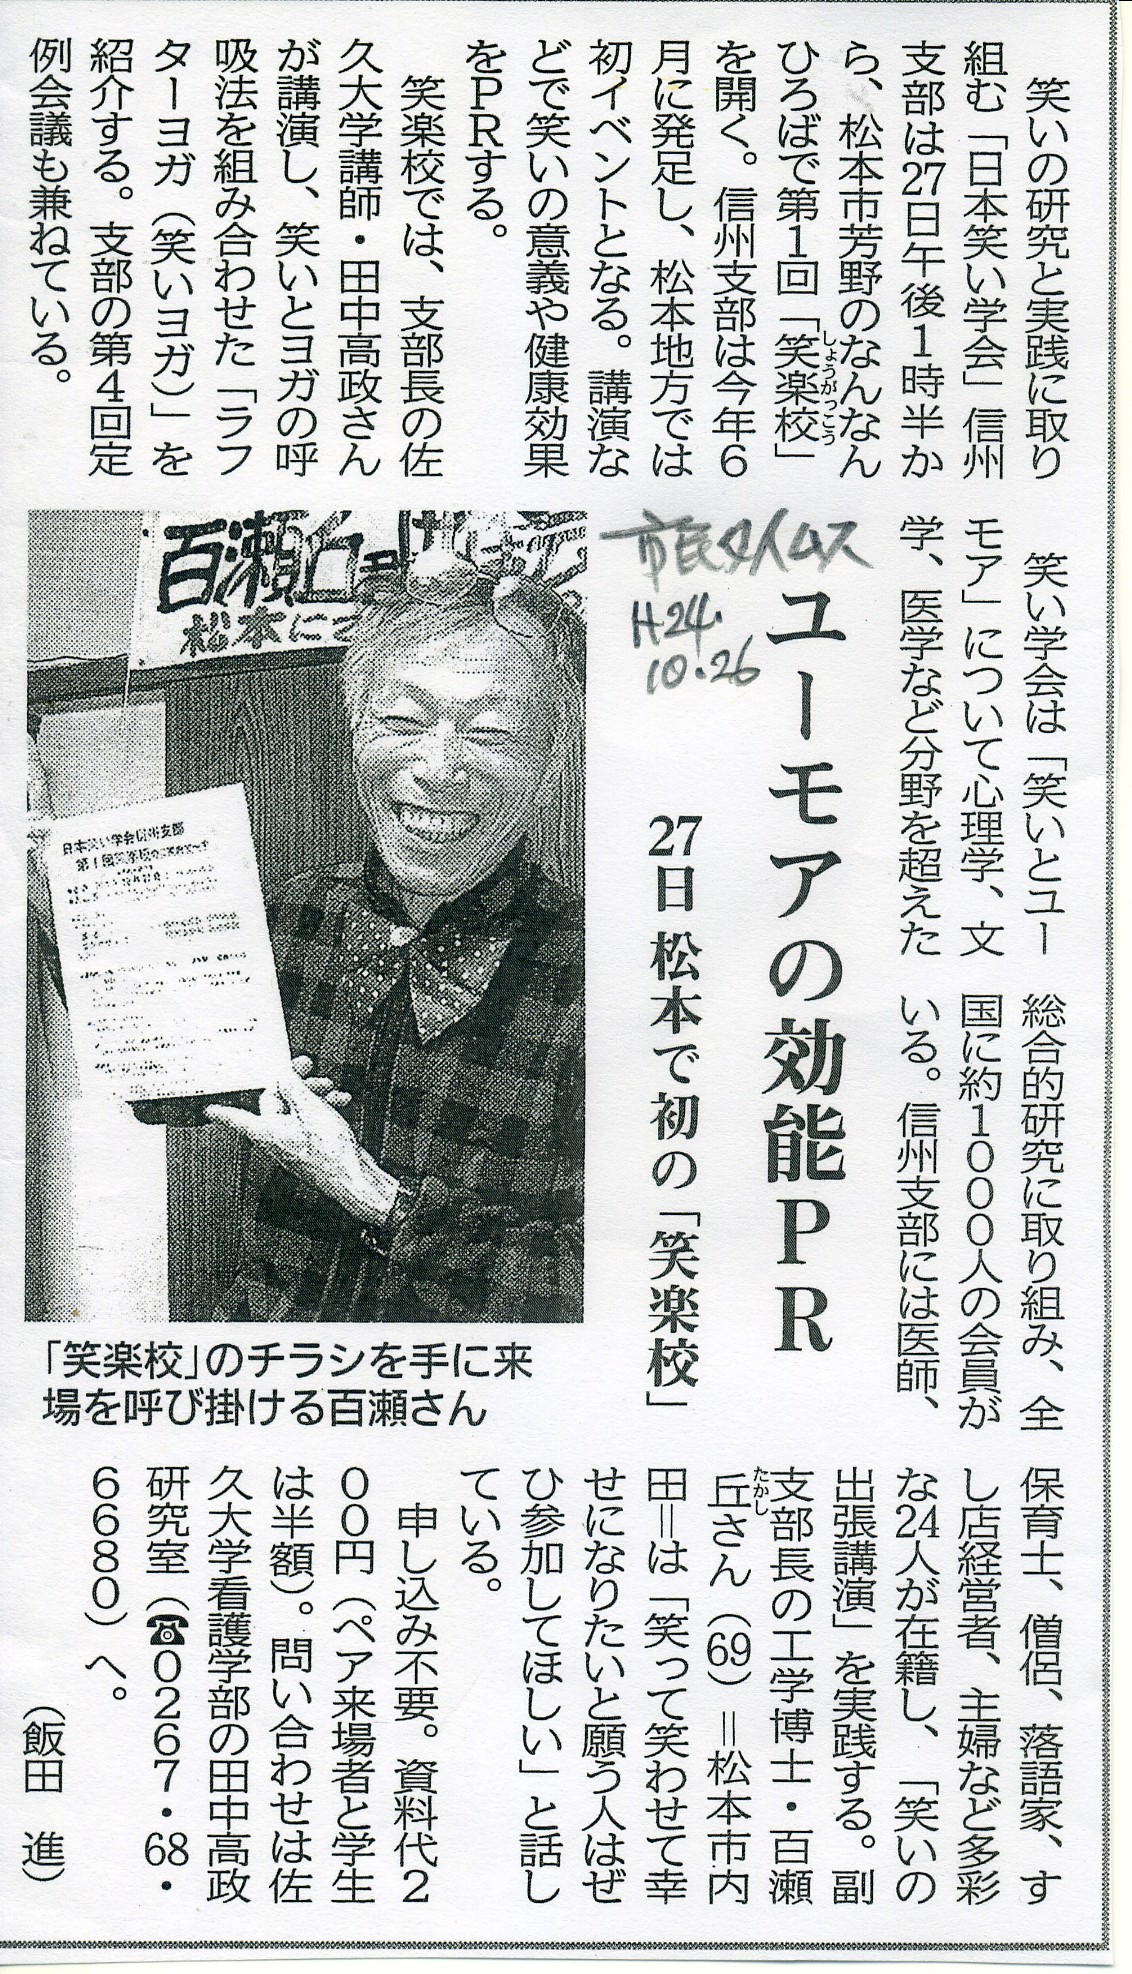 ユーモアの効能PR
27日 松本で初の「笑楽校」
市民タイムス
H24.
10.26
笑いの研究と実践に取り
組む「日本笑い学会」信州
支部は27日午後1時半か
ら、松本市芳野のなんなん
ひろばで第1回「笑楽校」
しょうがっこう
を開く。信州支部は今年6
月に発足し、松本地方では
初イベントとなる。講演な
どで笑いの意義や健康効果
をPRする。
笑楽校では、支部長の佐
久大学講師・田中高政さん
が講演し、笑いとヨガの呼
吸法を組み合わせた「ラフ
ターヨガ(笑いヨガ)」を
紹介する。支部の第4回定
例会議も兼ねている。
笑い学会は「笑いとユー
モア」について心理学、文
学、医学など分野を超えた
総合的研究に取り組み、全
国に約1000人の会員が
いる。信州支部には医師、
保育士、僧侶、落語家、す
し店経営者、主婦など多彩
な24人が在籍し、「笑いの
出張講演」を実践する。副
支部長の工学博士・百瀬
丘さん(69)=松本市内
たかし
田=は「笑って笑わせて幸
せになりたいと願う人はぜ
ひ参加してほしい」と話し
ている。
申し込み不要。資料代2
00円(ペア来場者と学生
は半額)。問い合わせは佐
久大学看護学部の田中高政
研究室(☎0267・68・
6680)へ。
(飯田 進)
百瀬
松本に
日本笑い学会信州支部
第1回笑楽校
「笑楽校」のチラシを手に来
場を呼び掛ける百瀬さん